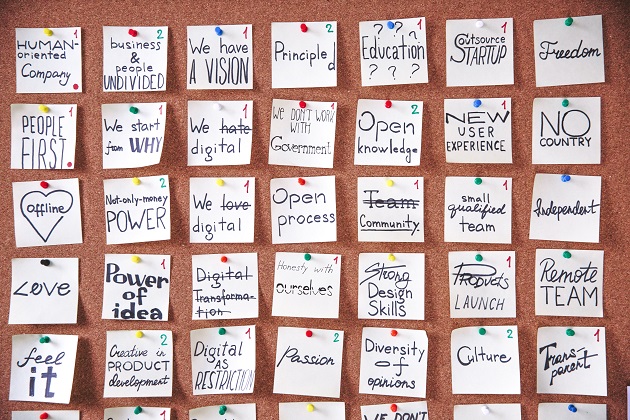 HUMAN-
oriented
Company.
1
business
&
people
UNDIVIDED
1
We have
A VISION
1
Principled
2
? ? ?
Education
? ? ?
1
Outsource
STARTUP
1
Freedom
2
PEOPLE
FIRST
1
We start
from WHY
2
We hate
digital
1
WE DON'T WORK
WITH
Government
1
Open
knowledge
2
NEW
USER
EXPERIENCE
1
NO
COUNTRY
1
offline
Not-only-money
POWER
2
We love
digital
1
Open
process
1
Team
Community
1
small
qualified
team
1
Independent
1
Love
Power
of
idea
1
Digital
Transforma-
tion
1
Honesty with
ourselves
1
Strong
Design
Skills
Products
LAUNCH
1
Remote
TEAM
1
feel
it
Creative in
PRODUCT
development
2
Digital
AS
RESTRICTION
1
Passion
2
Diversity
of
opinions
1
Culture
2
Trans-
parent
1
WE DON'T